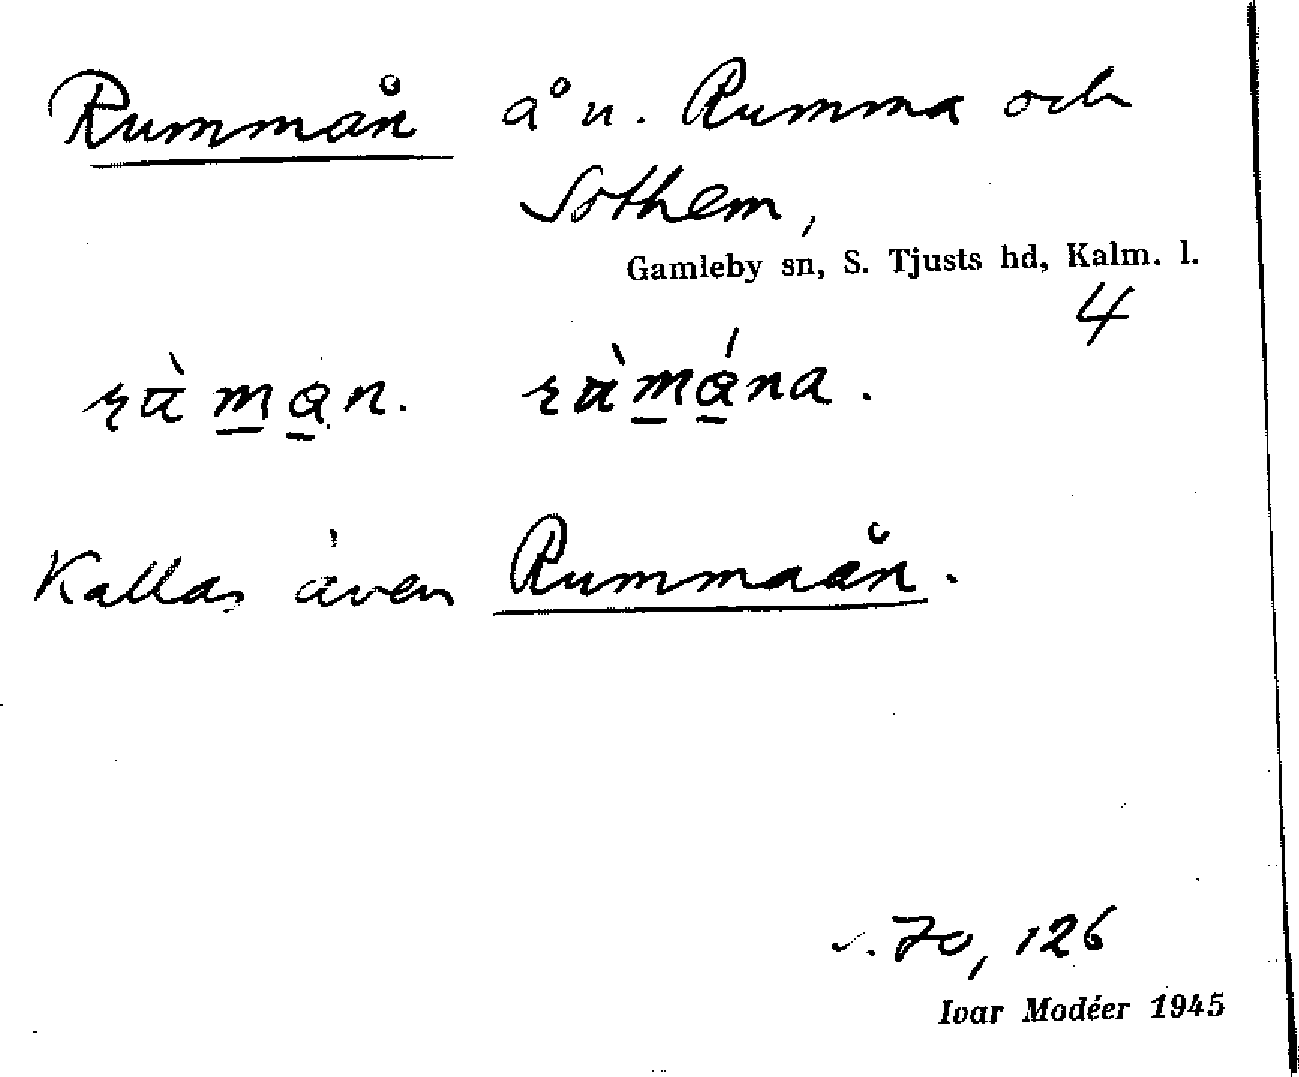 Rummån å n. Rumma och
Sothem,
Gamleby sn, S. Tjusts hd, Kalm. l.
4
Kallas även Rummaån.
s. 70, 126
Ivar Modéer 1945